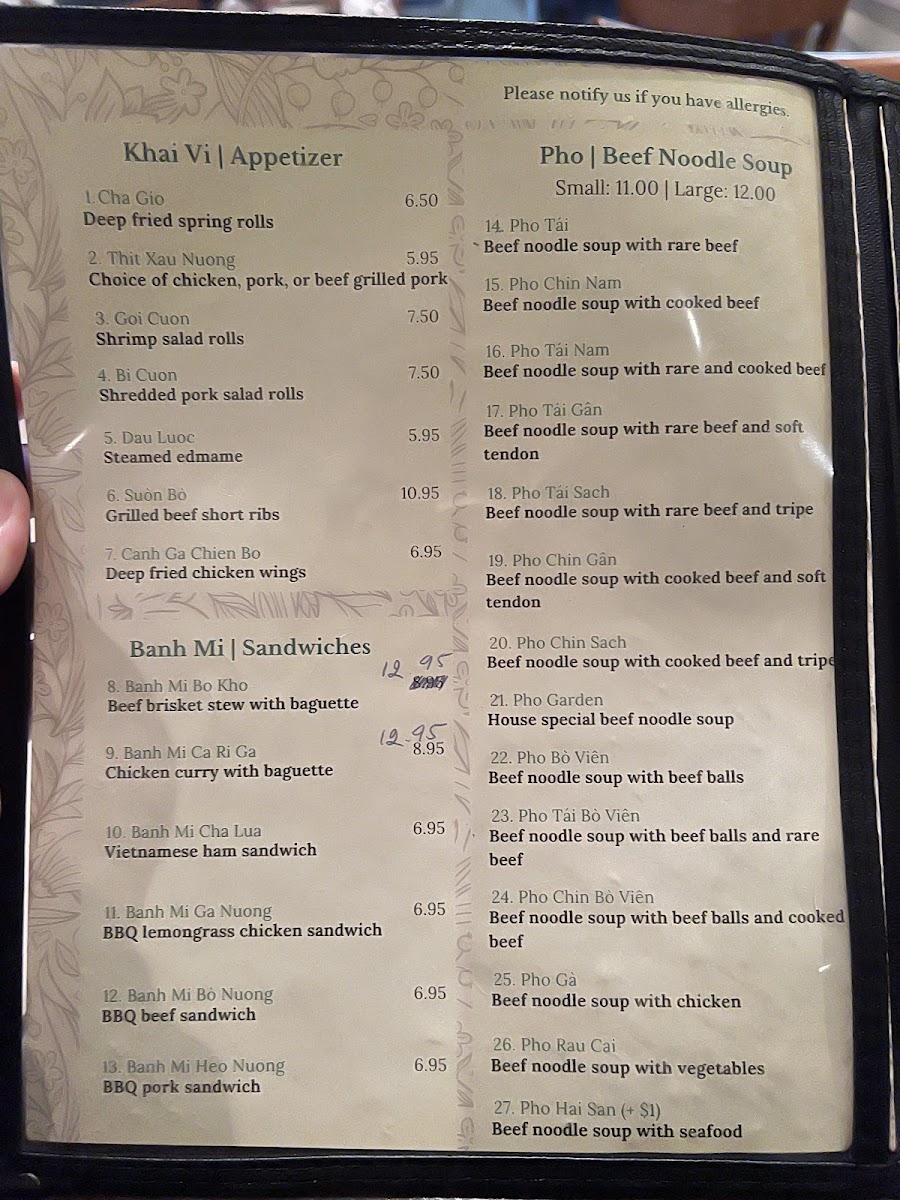 Please notify us if you have allergies.
Khai Vi | Appetizer
1. Cha Gio 6.50
Deep fried spring rolls
2. Thit Xau Nuong 5.95
Choice of chicken, pork, or beef grilled pork
3. Goi Cuon 7.50
Shrimp salad rolls
4. Bi Cuon 7.50
Shredded pork salad rolls
5. Dau Luoc 5.95
Steamed edmame
6. Suòn Bò 10.95
Grilled beef short ribs
7. Canh Ga Chien Bo 6.95
Deep fried chicken wings
Banh Mi | Sandwiches
12.95
8. Banh Mi Bo Kho
Beef brisket stew with baguette
12.95
9. Banh Mi Ca Ri Ga 8.95
Chicken curry with baguette
10. Banh Mi Cha Lua 6.95
Vietnamese ham sandwich
11. Banh Mi Ga Nuong 6.95
BBQ lemongrass chicken sandwich
12. Banh Mi Bò Nuong 6.95
BBQ beef sandwich
13. Banh Mi Heo Nuong 6.95
BBQ pork sandwich
Pho | Beef Noodle Soup
Small: 11.00 | Large: 12.00
14. Pho Tái
Beef noodle soup with rare beef
15. Pho Chin Nam
Beef noodle soup with cooked beef
16. Pho Tái Nam
Beef noodle soup with rare and cooked beef
17. Pho Tái Gân
Beef noodle soup with rare beef and soft
tendon
18. Pho Tái Sach
Beef noodle soup with rare beef and tripe
19. Pho Chin Gân
Beef noodle soup with cooked beef and soft
tendon
20. Pho Chin Sach
Beef noodle soup with cooked beef and tripe
21. Pho Garden
House special beef noodle soup
22. Pho Bò Viên
Beef noodle soup with beef balls
23. Pho Tái Bò Viên
Beef noodle soup with beef balls and rare
beef
24. Pho Chin Bò Viên
Beef noodle soup with beef balls and cooked
beef
25. Pho Gà
Beef noodle soup with chicken
26. Pho Rau Cai
Beef noodle soup with vegetables
27. Pho Hai San (+ $1)
Beef noodle soup with seafood